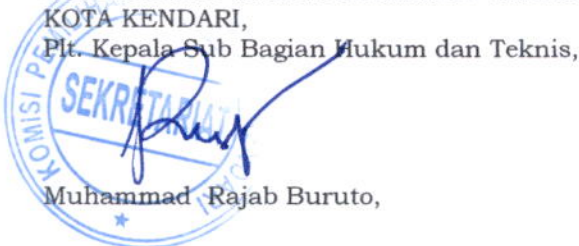 KOTA KENDARI,
Plt. Kepala Sub Bagian Hukum dan Teknis,
KOMISI PEM
SEKRETARIAT
ARI
Muhammad Rajab Buruto,